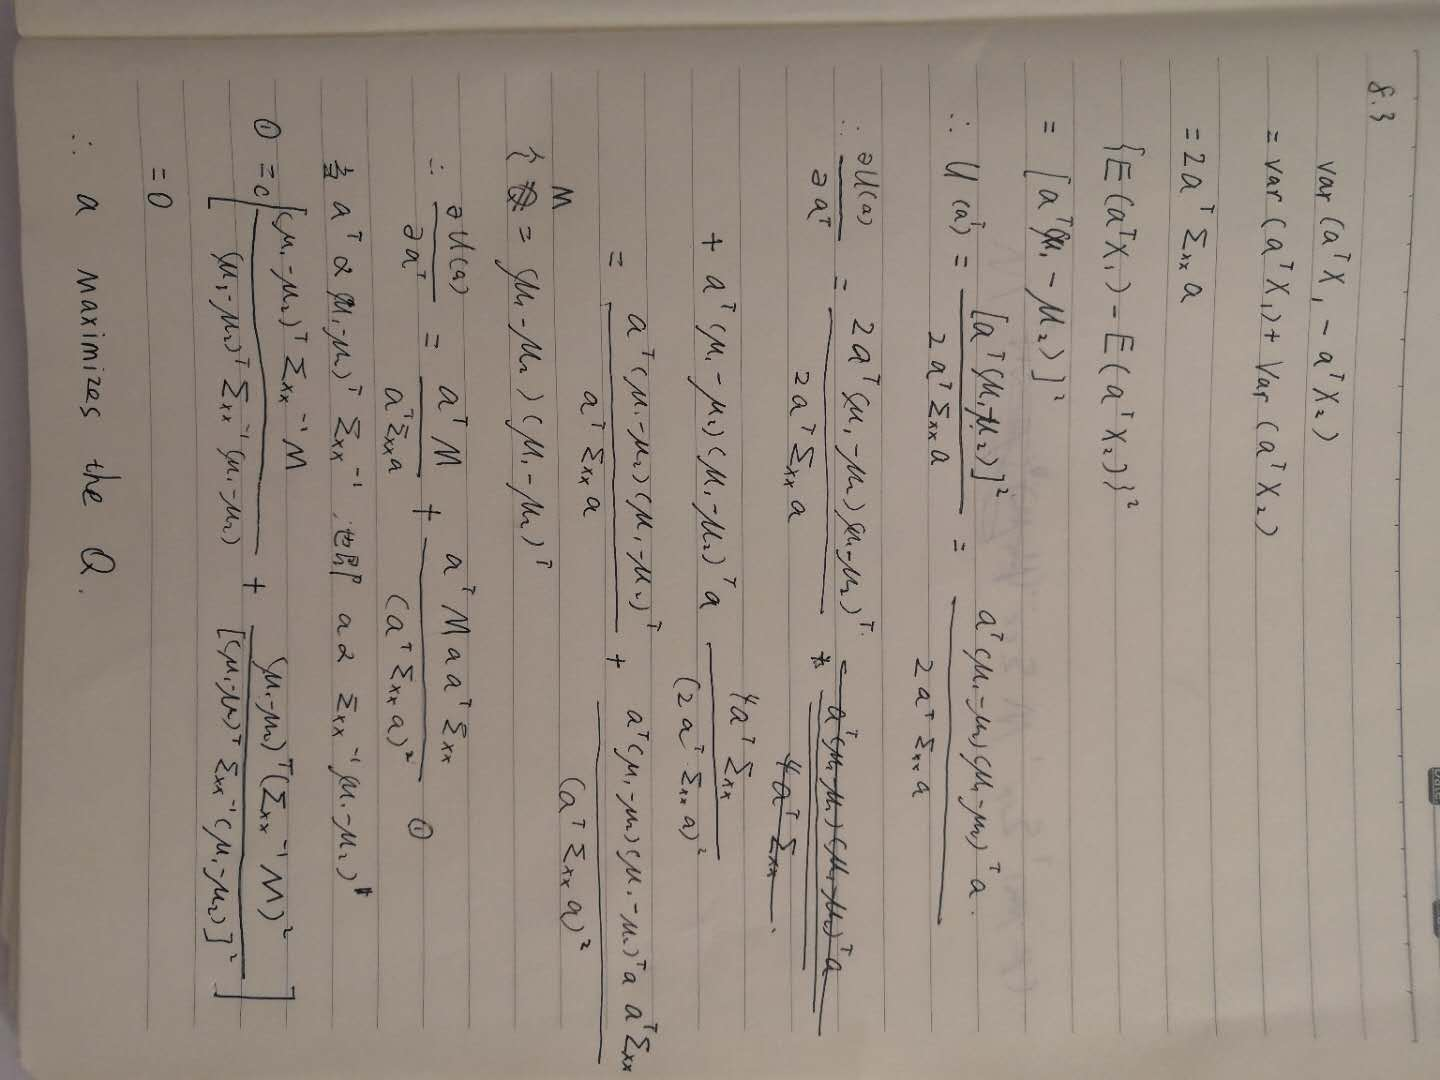 8.3
var (aᵀX₁ - aᵀX₂)
= var (aᵀX₁) + Var (aᵀX₂)
= 2aᵀ Σxx a
{E(aᵀX₁) - E(aᵀX₂)}²
= [aᵀ(μ₁ - μ₂)]²
∴ U(a) = [aᵀ(μ₁-μ₂)]² / 2aᵀΣxx a = aᵀ(μ₁-μ₂)(μ₁-μ₂)ᵀa. / 2aᵀΣxx a
∴ ∂U(a) / ∂aᵀ = 2aᵀ(μ₁-μ₂)(μ₁-μ₂)ᵀ. / 2aᵀΣxx a
+ aᵀ(μ₁-μ₂)(μ₁-μ₂)ᵀa 4aᵀΣxx / (2aᵀΣxx a)²
= aᵀ(μ₁-μ₂)(μ₁-μ₂)ᵀ / aᵀΣxx a + aᵀ(μ₁-μ₂)(μ₁-μ₂)ᵀa aᵀΣxx / (aᵀΣxx a)²
M = (μ₁-μ₂)(μ₁-μ₂)ᵀ
∴ ∂U(a) / ∂aᵀ = aᵀM / aᵀΣxx a + aᵀM a aᵀΣxx / (aᵀΣxx a)² ①
当 aᵀ α (μ₁-μ₂)ᵀ Σxx⁻¹, 也即 a α Σxx⁻¹(μ₁-μ₂)
① = c [ (μ₁-μ₂)ᵀ Σxx⁻¹ M / (μ₁-μ₂)ᵀ Σxx⁻¹(μ₁-μ₂) + (μ₁-μ₂)ᵀ(Σxx⁻¹ M)² / [(μ₁-μ₂)ᵀ Σxx⁻¹(μ₁-μ₂)]² ]
= 0
∴ a maximizes the Q.